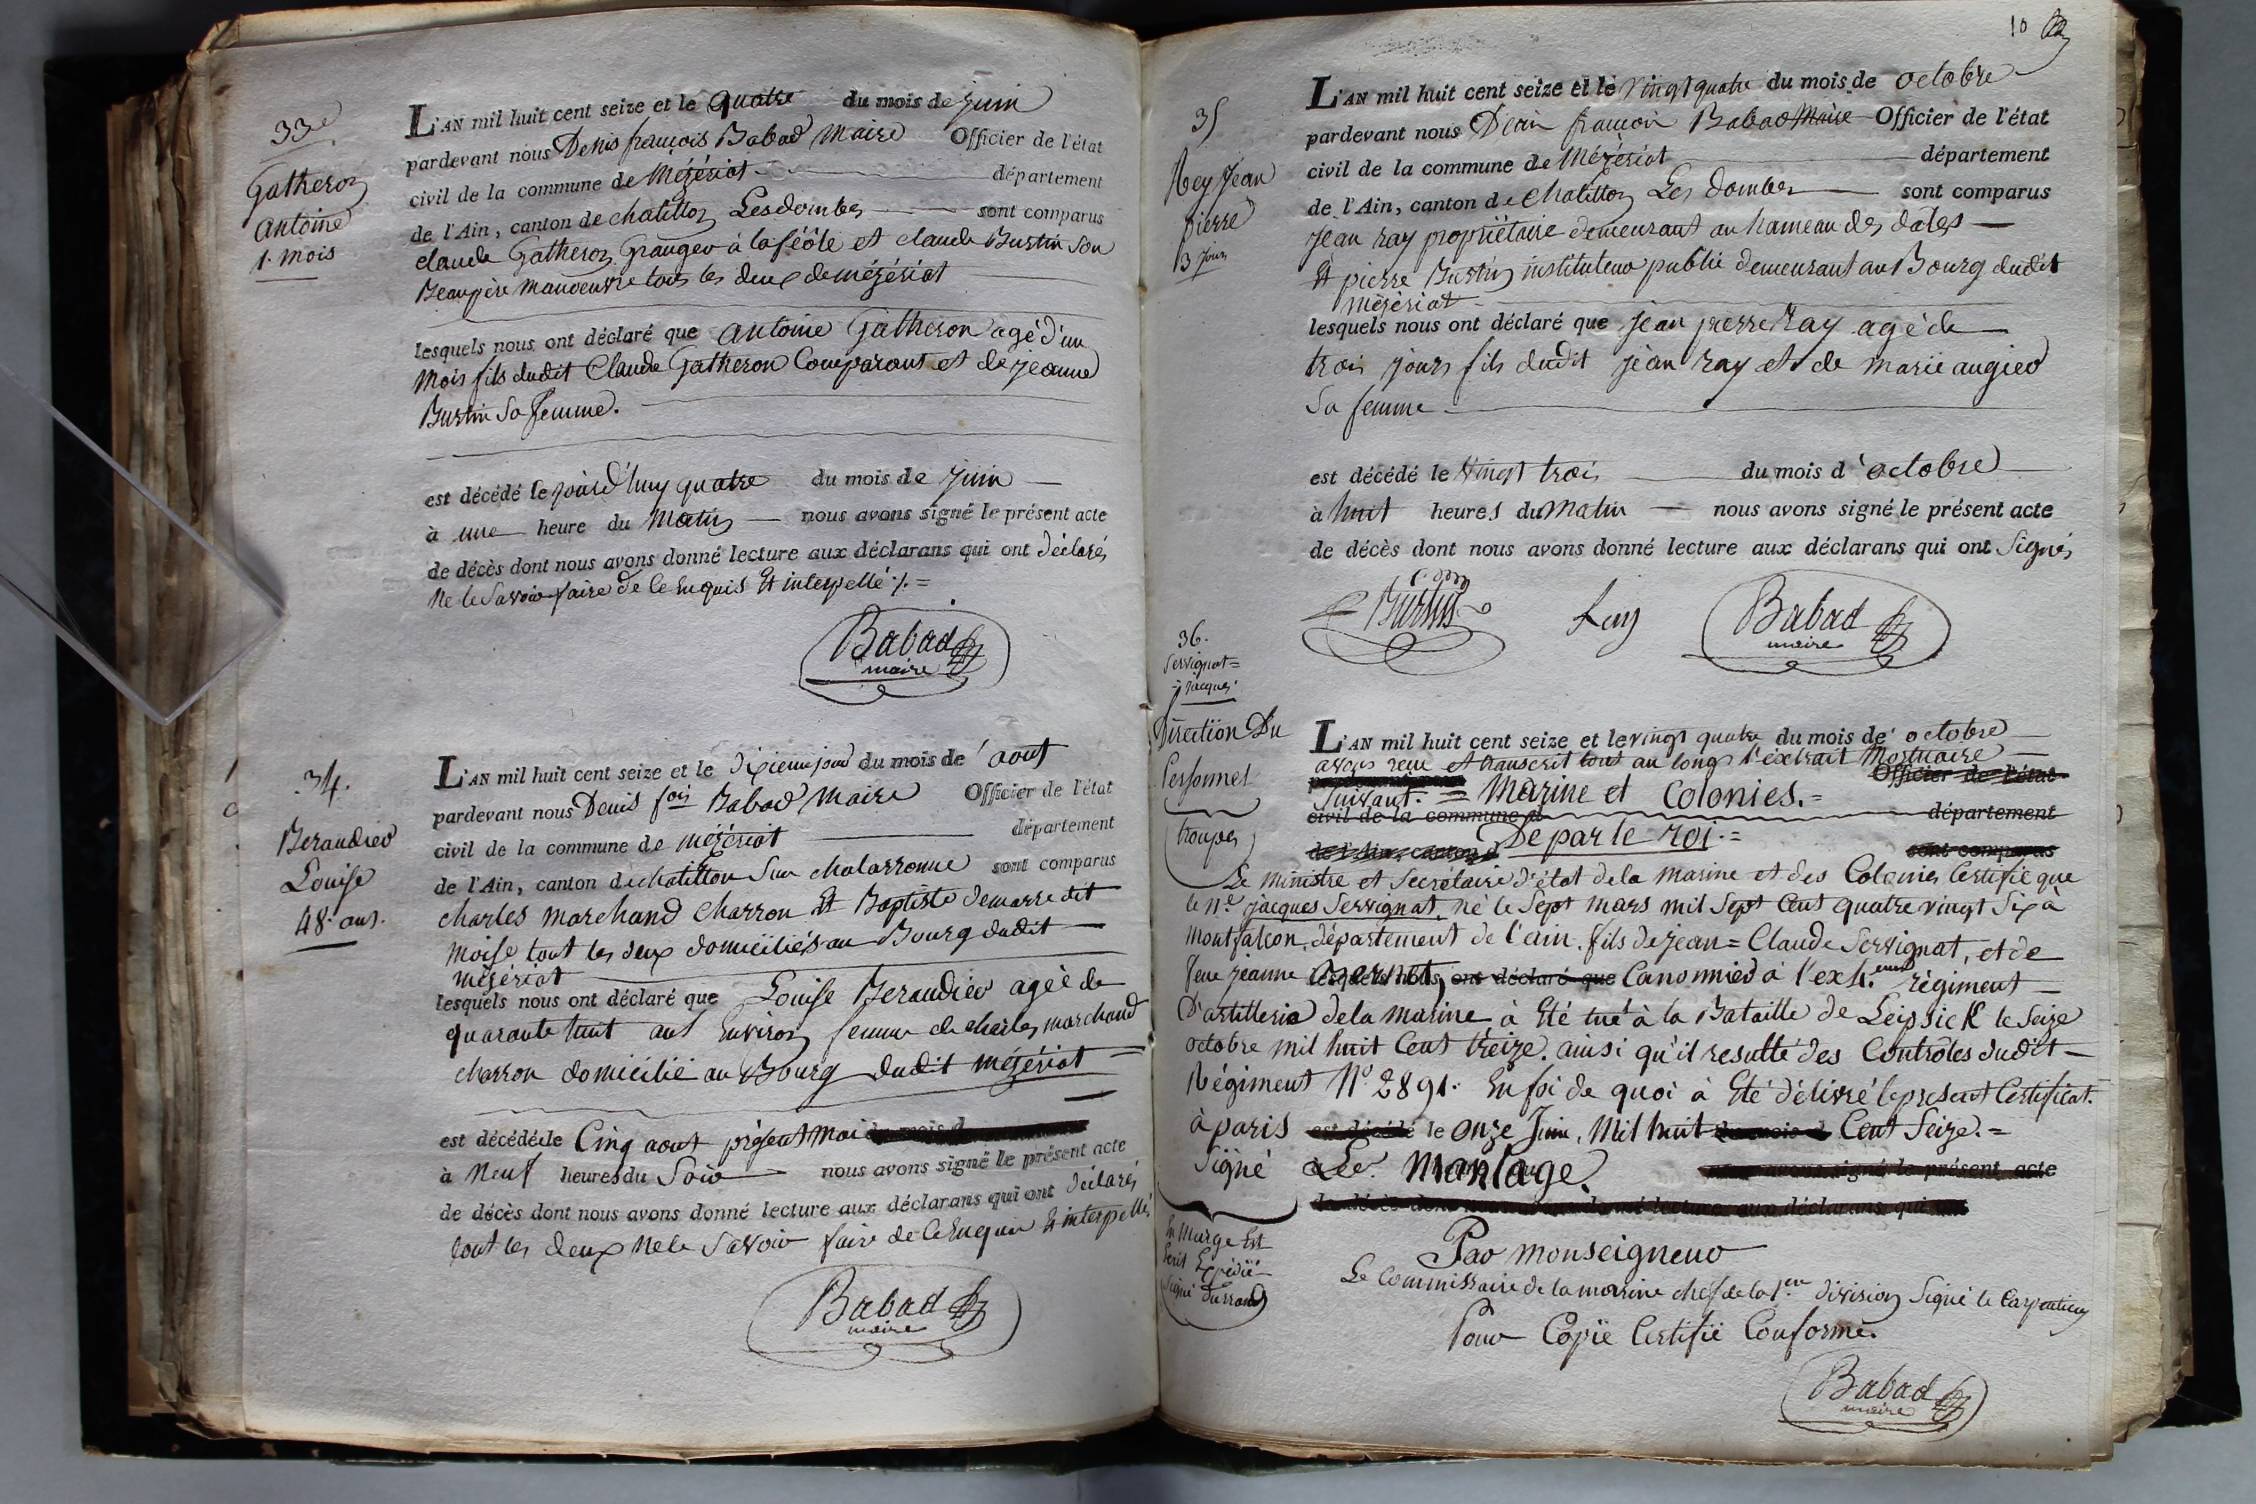 33e
Gatheron
antoine
1. mois
L'AN mil huit cent seize et le quatre du mois de juin
pardevant nous Denis françois Babad maire Officier de l'état
civil de la commune de Mézériat département
de l'Ain, canton de chatillon Lesdombes sont comparus
claude Gatheron Granger à la féôle et claude Burtin son
Beaupère manoeuvre tous les deux de mézériat
lesquels nous ont déclaré que antoine Gatheron agé d'un
mois fils dudit Claude Gatheron Comparant et de jeanne
Burtin sa femme.
est décédé le jourd'huy quatre du mois de juin
à une heure du matin nous avons signé le présent acte
de décès dont nous avons donné lecture aux déclarans qui ont déclarés
Ne le savoir faire de ce Enquis Et interpellé ./. =
Babad
maire
34.
Beraudier
Louise
48. ans.
L'AN mil huit cent seize et le dixieme jour du mois de aout
pardevant nous Denis fois Babad maire Officier de l'état
civil de la commune de mézériat département
de l'Ain, canton de chatillon sur chalaronne sont comparus
charles marchand charron Et Baptiste demarre dit
moise tout les deux domiciliés au Bourg dudit
mézériat
lesquels nous ont déclaré que Louise Beraudier agée de
quarante huit ans Environ femme de charles marchand
charron domicilié au Bourg dudit mézériat =
est décédée le Cinq aout présent moi du mois d
à neuf heures du soir nous avons signé le présent acte
de décès dont nous avons donné lecture aux déclarans qui ont déclarés
tout les deux Ne le savoir faire de ce Enquis Et interpellés
Babad
maire
10
35
Rey Jean
pierre
3 jours
L'AN mil huit cent seize et le vingt quatre du mois de octobre
pardevant nous Denis françois Babad Maire Officier de l'état
civil de la commune de Mézériat département
de l'Ain, canton de chatillon Les dombes sont comparus
jean ray propriétaire demeurant au hameau des dales
Et pierre Burtin instituteur public demeurant au Bourg dudit
mézériat
lesquels nous ont déclaré que jean pierre Ray agé de
trois jours fils dudit jean ray et de marie augier
sa femme
est décédé le vingt trois du mois d'octobre
à huit heures du matin nous avons signé le présent acte
de décès dont nous avons donné lecture aux déclarans qui ont signés
Burtin
Babad
maire
36.
Servignat =
jacques.
L'AN mil huit cent seize et le vingt quatre du mois de octobre
avons reçu et transcrit tout au long l'éxtrait Mortuaire
Officier de l'état
suivant. = Marine et Colonies. =
civil de la commune d département
Direction Du
Personnel
troupes
de l'Ain, canton d De par le roi. = sont comparus
Le ministre et Secrétaire d'état de la marine et des Colonies Certifie que
le n.é jacques Servignat, né le Sept mars mil Sept Cent quatre vingt Six à
montfalcon, département de l'ain. fils de jean = Claude Servignat, et de
feue jeanne lesquels nous ont déclaré que Canonnier à l'ex 4.eme régiment
D'artillerie de la marine à Eté tué à la Bataille de Leipsick le Seize
octobre mil huit Cent treize. ainsi qu'il resulte des Contrôles dudit
Régiment N.o 2891. En foi de quoi à Eté délivré le present Certificat.
à paris est décédé le onze Juin, Mil huit du mois d Cent Seize. =
Signé nous avons signé le présent acte
de décès dont nous avons donné lecture aux déclarans qui ont
En Marge Est
Ecrit Expédié
Signé Durrand
Par monseigneur
Le Commissaire de la marine chef de la 1.ere division Signé le Carpentier
Pour Copie Certifié Conforme.
Babad
maire